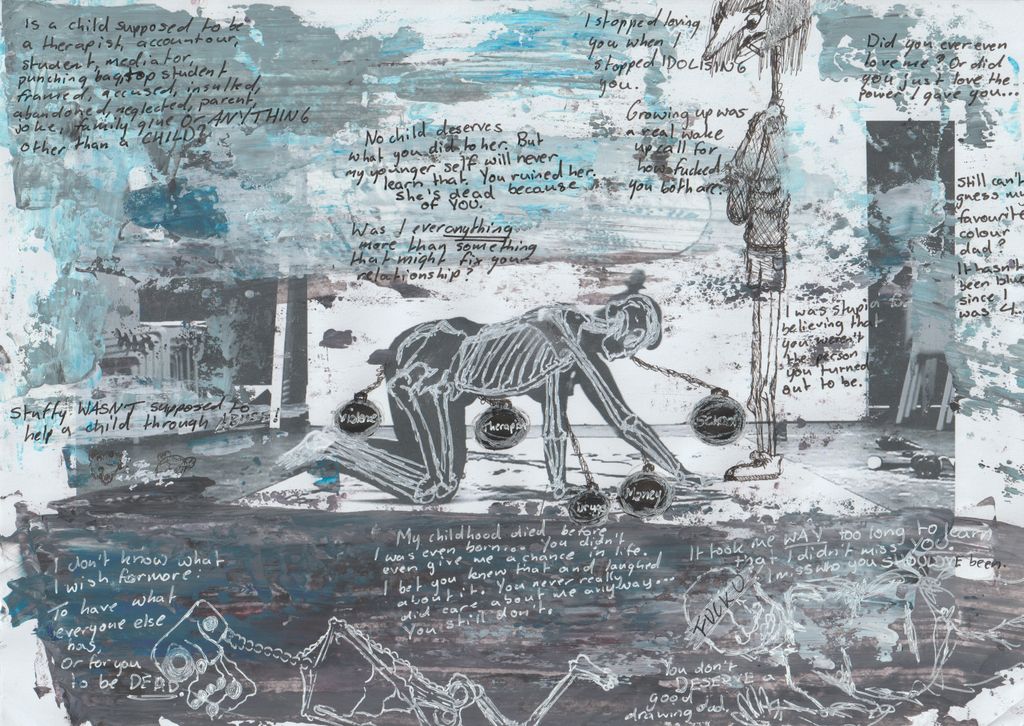 Is a child supposed to be
a therapist, accountour,
student, mediator,
punching bag, top student
framed, accused, insulted,
abandoned, neglected, parent,
joke, family glue Or ANYTHING
other than a CHILD?
I stopped loving
you when I
stopped IDOLISING
you.
Did you ever even
love me? Or did
you just love the
power I gave you...
No child deserves
what you did to her. But
my younger self will never
learn that. You ruined her.
She's dead because
of YOU.
Growing up was
a real wake
up call for
how fucked
you both are.
Was I ever anything
more than something
that might fix your
relationship?
Still can't
guess my
favourite
colour
dad?
It hasn't
been blue
since I
was 4...
I was stupid
believing that
you weren't
the person
you turned
out to be.
Stuffy WASN'T supposed to
help a child through
Violence
Therapy
School
Drugs
Money
I don't know what
I wish for more:
To have what
everyone else
has,
Or for you
to be DEAD.
My childhood died before
I was even born... You didn't
even give me a chance in life.
I bet you knew that and laughed
about it. You never really
did care about me anyway...
You still don't.
It took me WAY too long to learn
that I didn't miss YOU
I miss who you SHOULD'VE been.
You don't
DESERVE a
good
drawing dad.